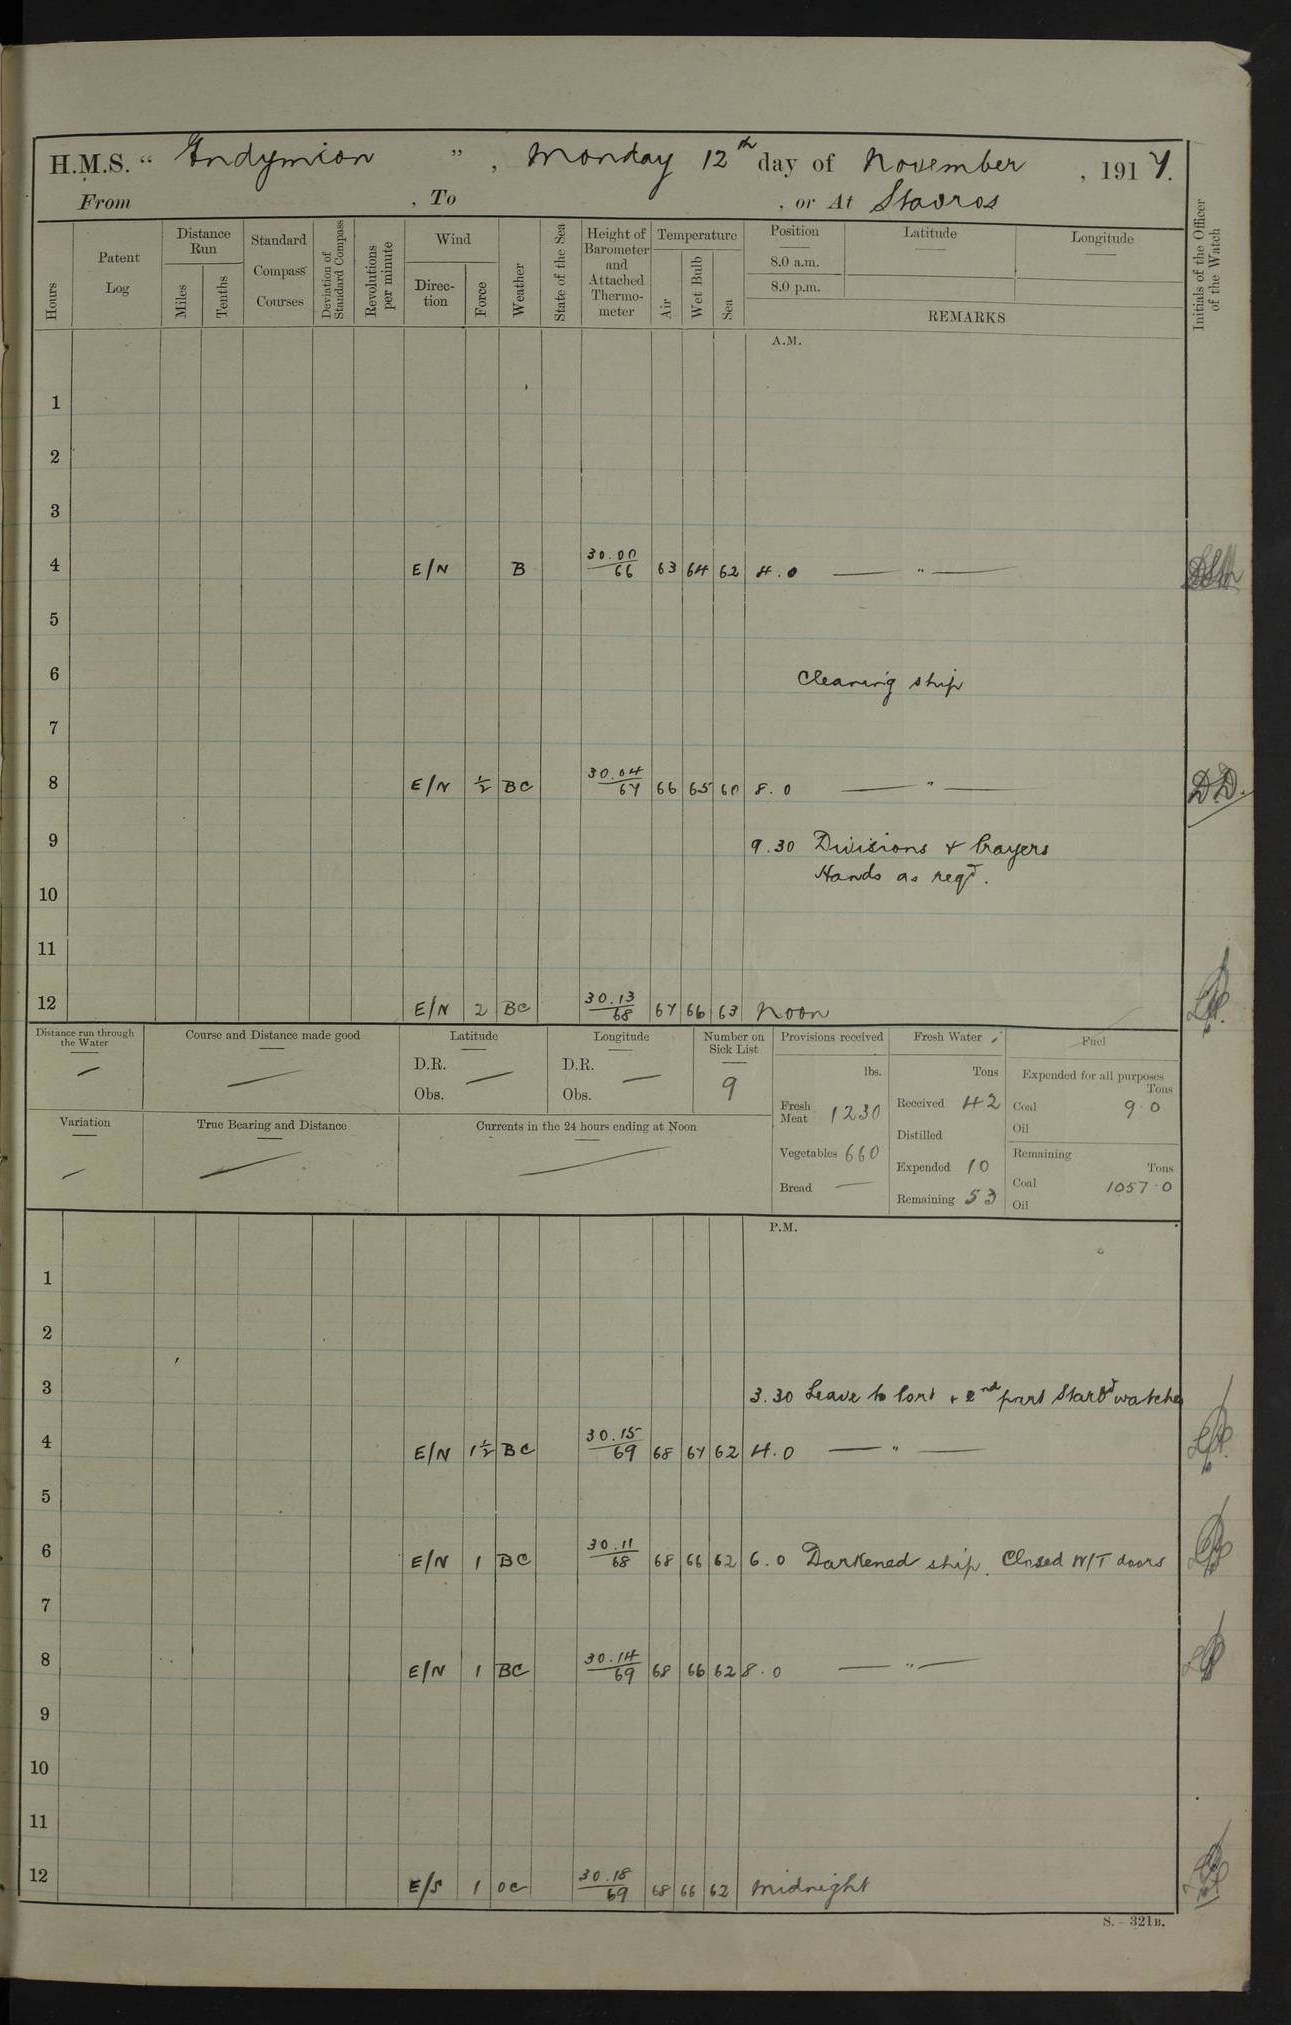 H.M.S. " Endymion ", Monday 12th day of November, 1917.
From , To , or At Stavros
Hours
Patent Log
Distance Run
Miles
Tenths
Standard Compass Courses
Deviation of Standard Compass
Revolutions per minute
Wind
Direction
Force
Weather
State of the Sea
Height of Barometer and Attached Thermometer
Temperature
Air
Wet Bulb
Sea
Position
8.0 a.m.
8.0 p.m.
Latitude
Longitude
REMARKS
Initials of the Officer of the Watch
A.M.
1
2
3
4 E/N B 30.00/66 63 64 62 4.0 — " —
5
6 Cleaning ship
7
8 E/N ½ BC 30.04/67 66 65 60 8.0 — " — D.D.
9 9.30 Divisions & Prayers
Hands as reqd.
10
11
12 E/N 2 BC 30.13/68 67 66 63 Noon
Distance run through the Water —
Course and Distance made good —
Latitude
D.R. —
Obs.
Longitude
D.R. —
Obs.
Number on Sick List
9
Provisions received
lbs.
Fresh Meat 1230
Vegetables 660
Bread —
Fresh Water
Tons
Received 42
Distilled
Expended 10
Remaining 53
Fuel
Expended for all purposes
Tons
Coal 9.0
Oil
Remaining
Tons
Coal 1057.0
Oil
Variation —
True Bearing and Distance —
Currents in the 24 hours ending at Noon —
P.M.
1
2
3 3.30 Leave to Port & 2nd part Starbd watches
4 E/N 1½ BC 30.15/69 68 67 62 4.0 — " —
5
6 E/N 1 BC 30.11/68 68 66 62 6.0 Darkened ship. Closed W/T doors
7
8 E/N 1 BC 30.14/69 68 66 62 8.0 — " —
9
10
11
12 E/S 1 OC 30.18/69 68 66 62 Midnight
S.—321B.